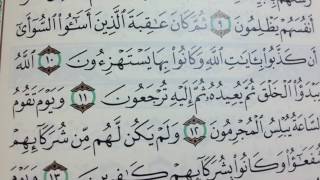 أَنفُسَهُمْ يَظْلِمُونَ ٩ ثُمَّ كَانَ عَٰقِبَةَ ٱلَّذِينَ أَسَٰٓـُٔوا۟ ٱلسُّوٓأَىٰٓ
أَن كَذَّبُوا۟ بِـَٔايَٰتِ ٱللَّهِ وَكَانُوا۟ بِهَا يَسْتَهْزِءُونَ ١٠ ٱللَّهُ
يَبْدَؤُا۟ ٱلْخَلْقَ ثُمَّ يُعِيدُهُۥ ثُمَّ إِلَيْهِ تُرْجَعُونَ ١١ وَيَوْمَ تَقُومُ
ٱلسَّاعَةُ يُبْلِسُ ٱلْمُجْرِمُونَ ١٢ وَلَمْ يَكُن لَّهُم مِّن شُرَكَآئِهِمْ
شُفَعَٰٓؤُا۟ وَكَانُوا۟ بِشُرَكَآئِهِمْ كَٰفِرِينَ ١٣ وَيَوْمَ